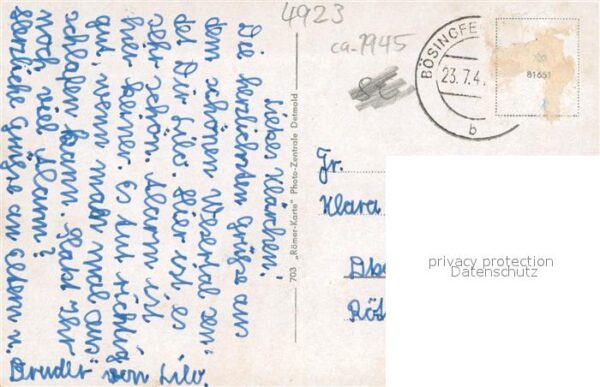 4923
ca. 1945
BÖSINGFE
23.7.4
b
81651
Liebes Klärchen!
Die herzlichsten Grüße aus
dem schönen Wesertal sen-
det Dir Lilo. Hier ist es
sehr schön. Alarm ist
hier keiner. Es tut richtig
gut wenn man mal aus-
schlafen kann. Habt Ihr
noch viel Alarm?
Herzliche Grüße an Eltern u.
Bruder von Lilo.
703 „Römer-Karte" Photo-Zentrale Detmold
Fr.
Klara
privacy protection
Datenschutz